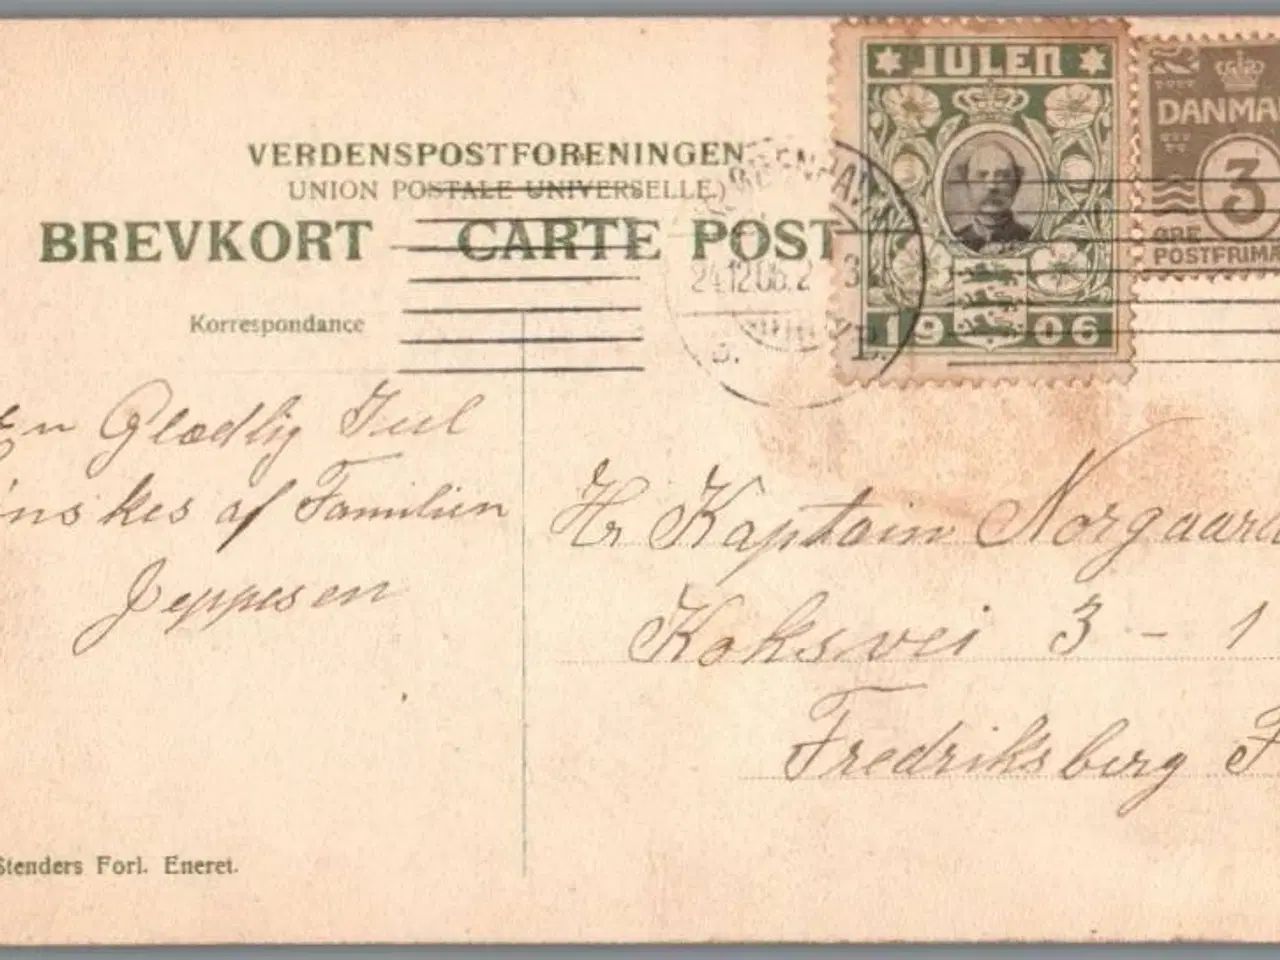 VERDENSPOSTFORENINGEN
UNION POSTALE UNIVERSELLE.)
BREVKORT CARTE POST
Korrespondance
JULEN
1906
DANMA
3
ØRE
POSTFRIM
KJØBENHAVN
24.12.06.2
3
B.
En Glædlig Jul
ønskes af Familien
Jeppesen
Hr Kaptain Norgaard
Koksvei 3 - 1
Fredriksberg F
Stenders Forl. Eneret.